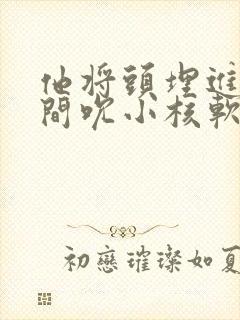 他将頭埋進
間吮小核軟
初戀璀璨如夏